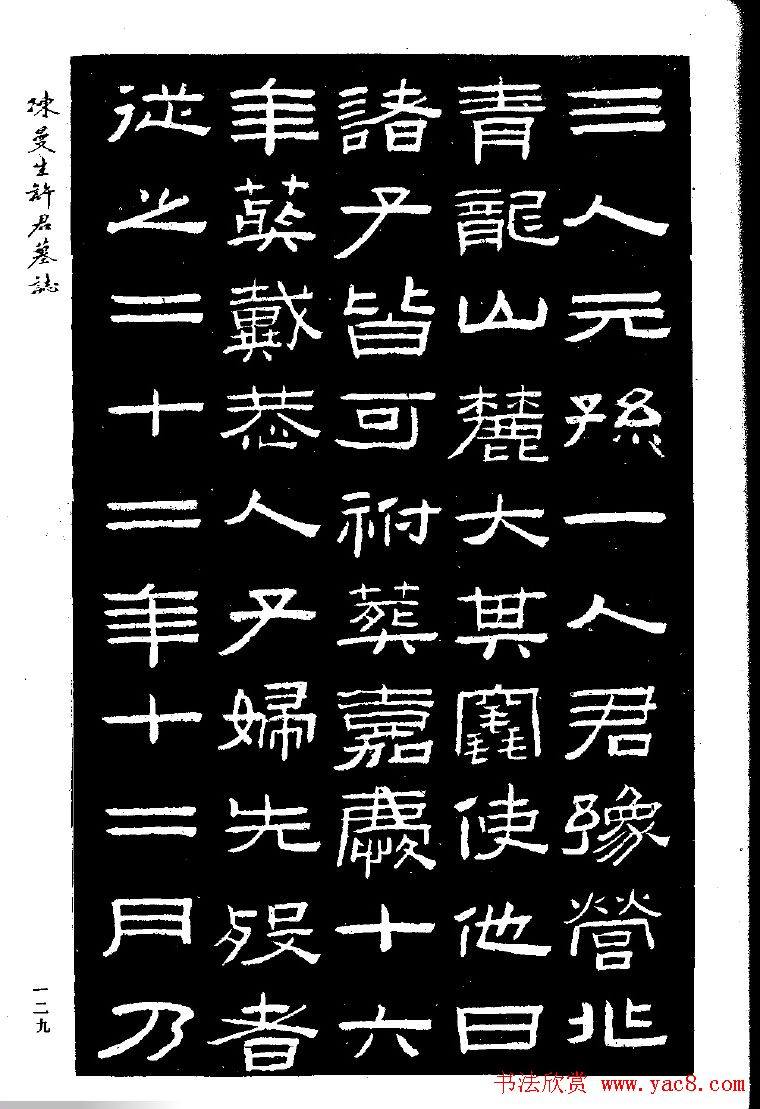 三人元孫一人君豫營兆
青龍山麓大其竁使他日
諸子皆可祔葬嘉慶十六
年葬戴恭人子婦先歿者
從之二十二年十二月乃
陳曼生許君墓誌
一二九
书法欣赏 www.yac8.com